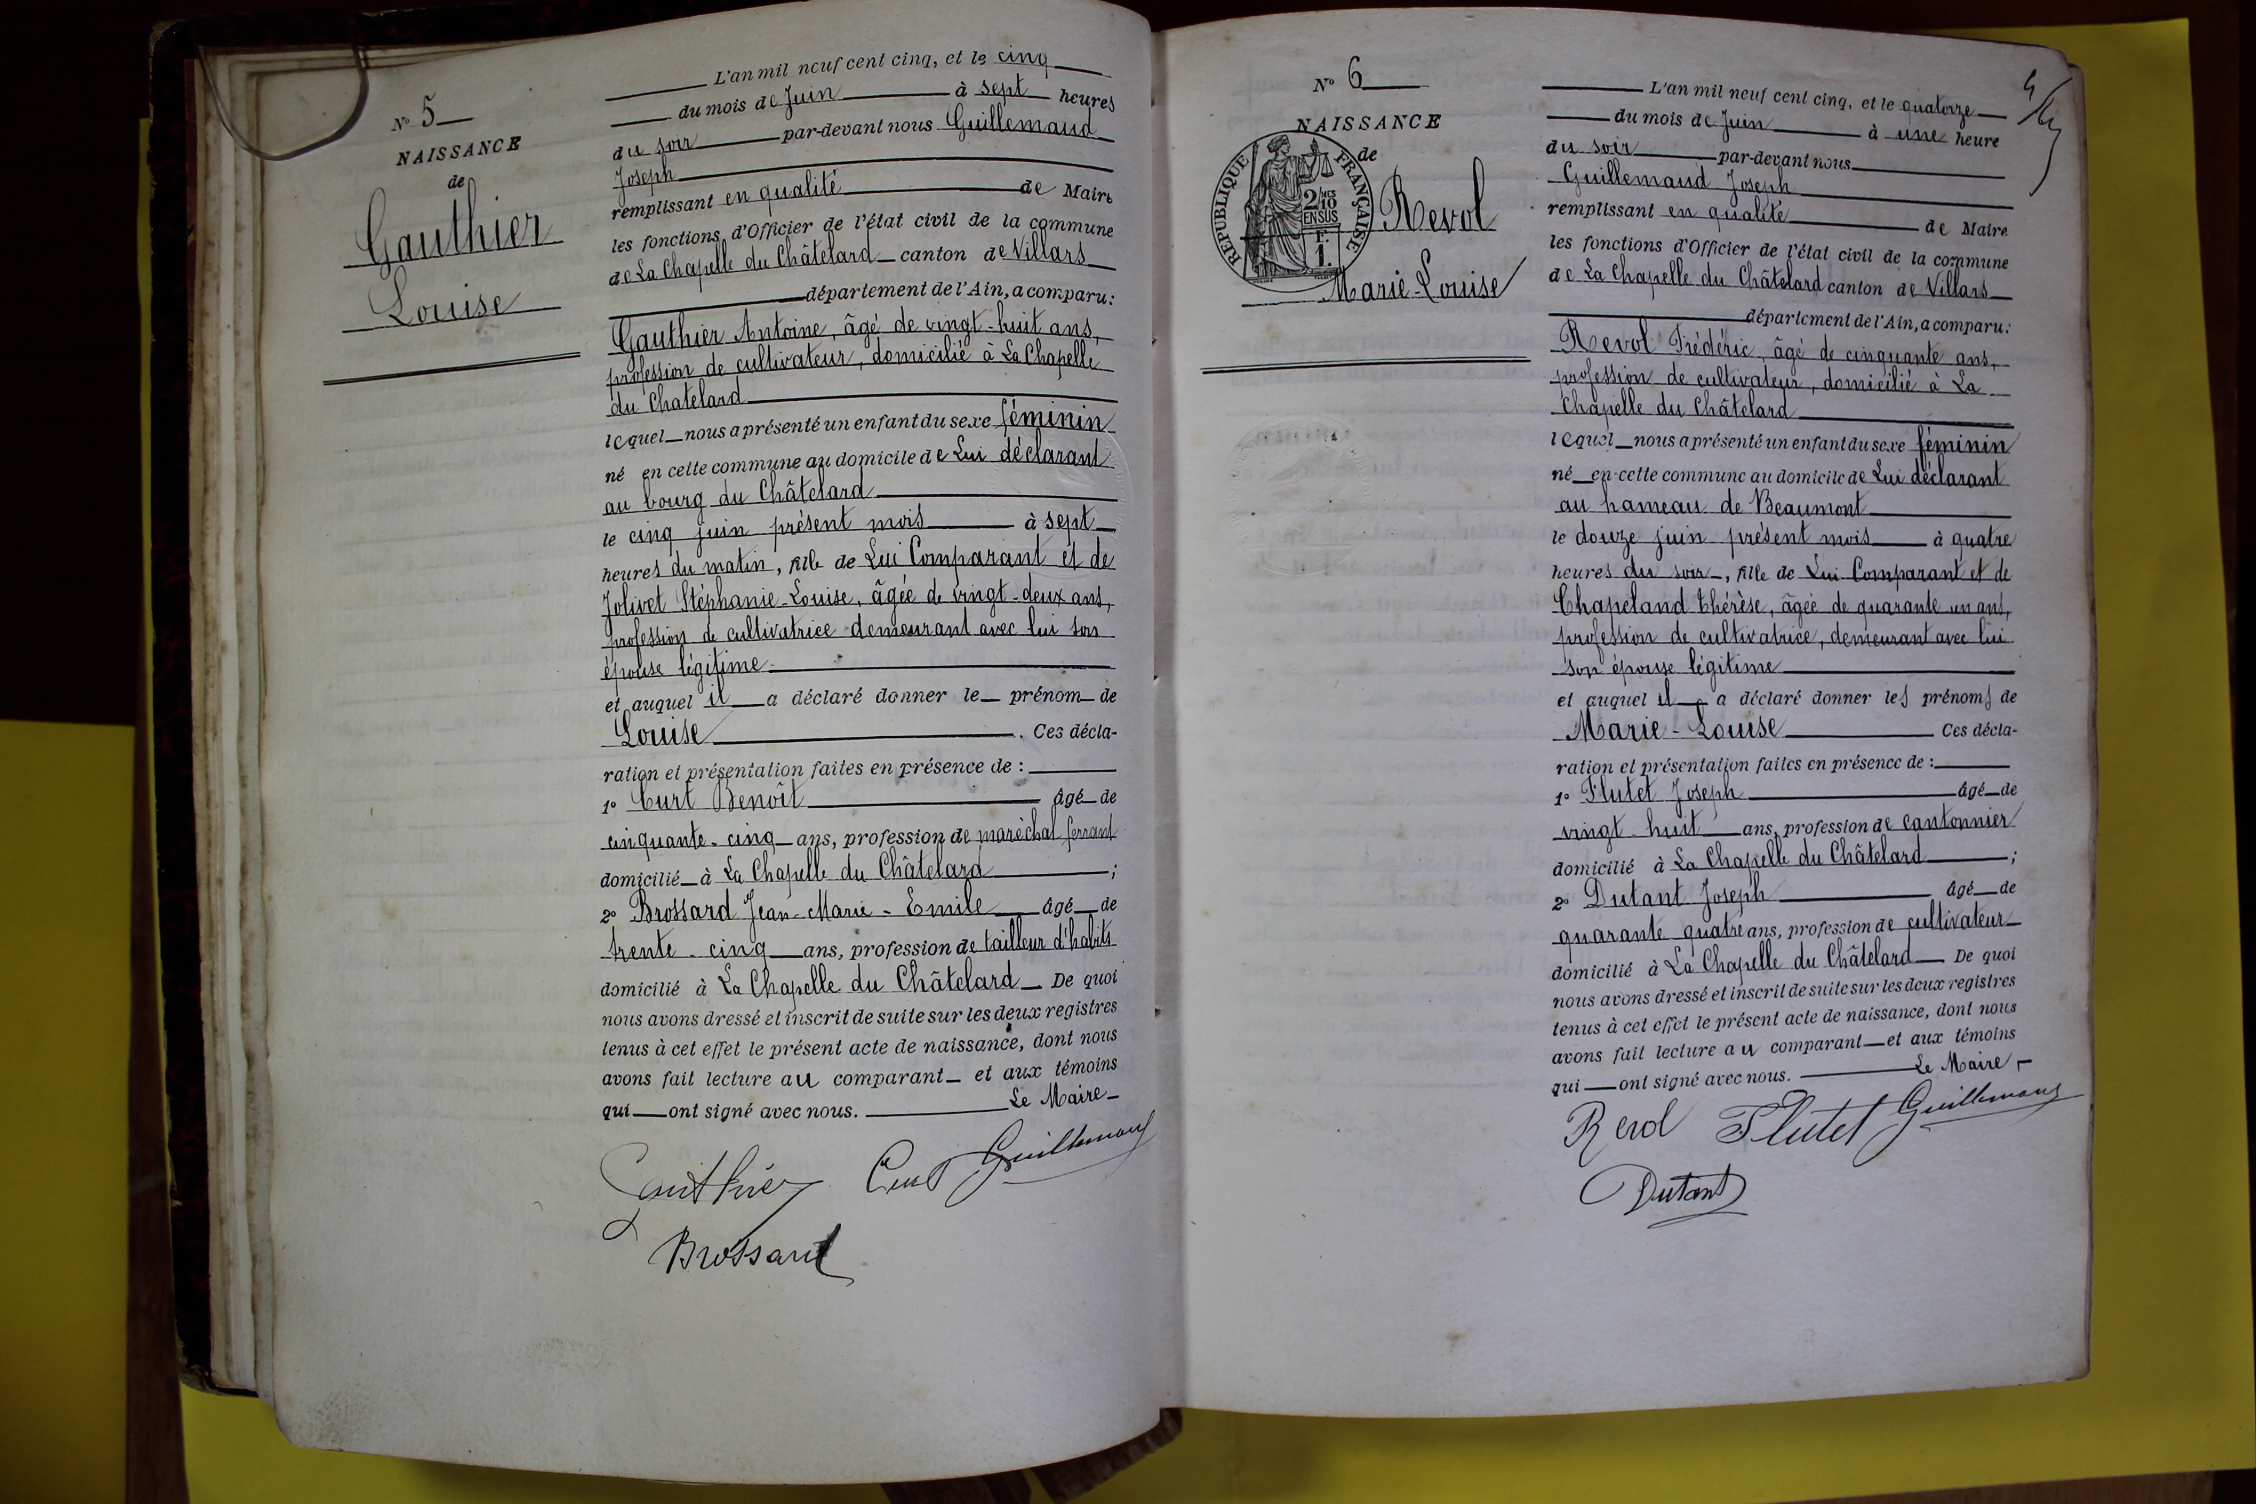 N° 5
NAISSANCE
de
Gauthier
Louise
L'an mil neuf cent cinq, et le cinq
du mois de Juin à sept heures
du soir par-devant nous Guillemaud
Joseph
remplissant en qualité de Maire
les fonctions d'Officier de l'état civil de la commune
de La Chapelle du Châtelard canton de Villars
département de l'Ain, a comparu:
Gauthier Antoine, âgé de vingt-huit ans,
profession de cultivateur, domicilié à La Chapelle
du Chatelard
lequel nous a présenté un enfant du sexe féminin
né en cette commune au domicile de Lui déclarant
au bourg du Châtelard
le cinq juin présent mois à sept
heures du matin, fille de Lui Comparant et de
Jolivet Stéphanie-Louise, âgée de vingt-deux ans,
profession de cultivatrice demeurant avec lui son
épouse légitime
et auquel il a déclaré donner le prénom de
Louise. Ces décla-
ration et présentation faites en présence de :
1° Curt Benoît âgé de
cinquante-cinq ans, profession de maréchal ferrant
domicilié à La Chapelle du Châtelard ;
2° Brossard Jean-Marie-Emile âgé de
trente-cinq ans, profession de tailleur d'habits
domicilié à La Chapelle du Châtelard De quoi
nous avons dressé et inscrit de suite sur les deux registres
tenus à cet effet le présent acte de naissance, dont nous
avons fait lecture au comparant et aux témoins
qui ont signé avec nous. Le Maire
Gauthier Curt Guillemaud
Brossard
N° 6
NAISSANCE
de
RÉPUBLIQUE FRANÇAISE
2/10 EN SUS
F. 1.
Revol
Marie-Louise
L'an mil neuf cent cinq, et le quatorze
du mois de Juin à une heure
du soir par-devant nous
Guillemaud Joseph
remplissant en qualité de Maire
les fonctions d'Officier de l'état civil de la commune
de La Chapelle du Châtelard canton de Villars
département de l'Ain, a comparu:
Revol Frédéric, âgé de cinquante ans,
profession de cultivateur, domicilié à La
Chapelle du Châtelard
lequel nous a présenté un enfant du sexe féminin
né en cette commune au domicile de Lui déclarant
au hameau de Beaumont
le douze juin présent mois à quatre
heures du soir, fille de Lui Comparant et de
Chapeland Thérèse, âgée de quarante un ans,
profession de cultivatrice, demeurant avec lui
son épouse légitime
et auquel il a déclaré donner les prénoms de
Marie-Louise Ces décla-
ration et présentation faites en présence de :
1° Flutet Joseph âgé de
vingt-huit ans, profession de cantonnier
domicilié à La Chapelle du Châtelard ;
2° Dutant Joseph âgé de
quarante quatre ans, profession de cultivateur
domicilié à La Chapelle du Châtelard De quoi
nous avons dressé et inscrit de suite sur les deux registres
tenus à cet effet le présent acte de naissance, dont nous
avons fait lecture au comparant et aux témoins
qui ont signé avec nous. Le Maire
Revol Flutet Guillemaud
Dutant